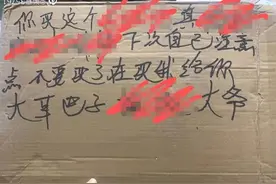 你买这个 真
下次自己注意
点 不要买了在买我给你
大草巴子 大爷